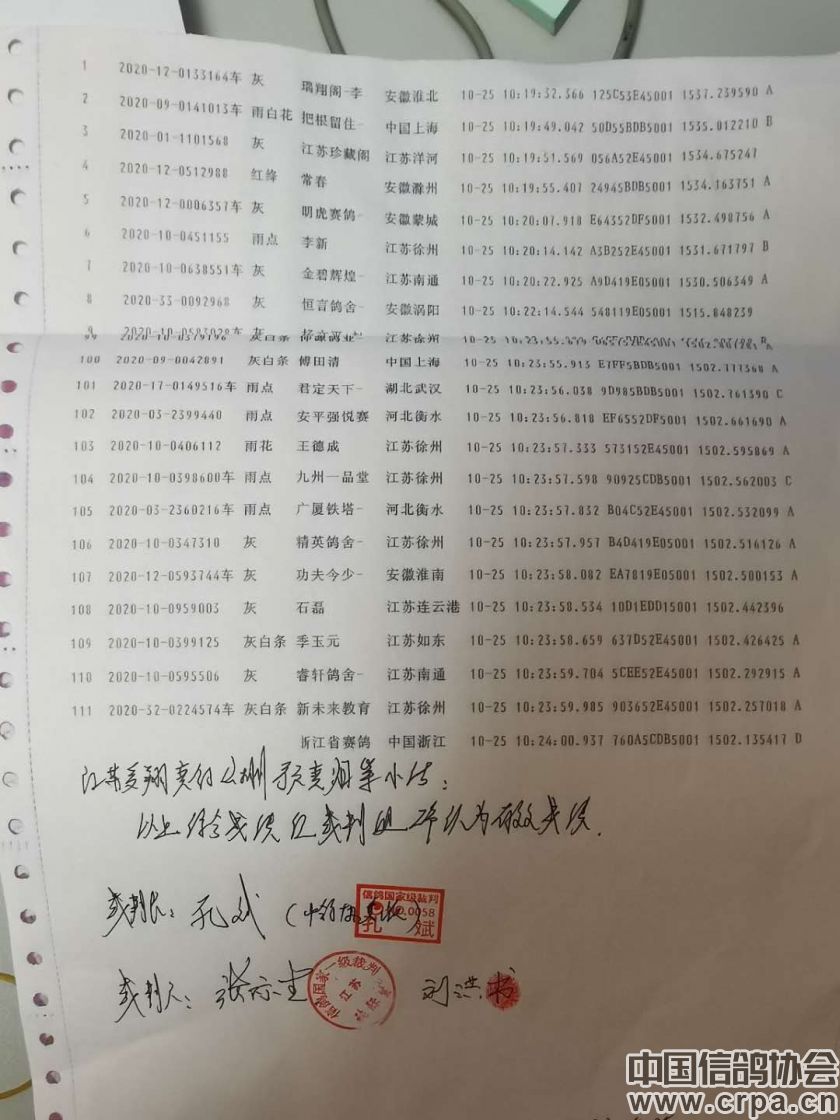 1 2020-12-0133164车 灰 瑞翔阁-李 安徽淮北 10-25 10:19:32.366 125C53E45001 1537.239590 A
2 2020-09-0141013车 雨白花 把根留住- 中国上海 10-25 10:19:49.042 50D55BDB5001 1535.012210 B
3 2020-01-1101568 灰 江苏珍藏阁 江苏洋河 10-25 10:19:51.569 056A52E45001 1534.675247
4 2020-12-0512988 红绛 常春 安徽滁州 10-25 10:19:55.407 24945BDB5001 1534.163751 A
5 2020-12-0006357车 灰 明虎赛鸽- 安徽蒙城 10-25 10:20:07.918 E64352DF5001 1532.498756 A
6 2020-10-0451155 雨点 李新 江苏徐州 10-25 10:20:14.142 A3B252E45001 1531.671797 B
7 2020-10-0638551车 灰 金碧辉煌- 江苏南通 10-25 10:20:22.925 A9D419E05001 1530.506349 A
8 2020-33-0092968 灰 恒言鸽舍- 安徽涡阳 10-25 10:22:14.544 548119E05001 1515.848239
100 2020-09-0042891 灰白条 傅田清 中国上海 10-25 10:23:55.913 E7FF5BDB5001 1502.777368 A
101 2020-17-0149516车 雨点 君定天下- 湖北武汉 10-25 10:23:56.038 9D985BDB5001 1502.761390 C
102 2020-03-2399440 雨点 安平强悦赛 河北衡水 10-25 10:23:56.818 EF6552DF5001 1502.661690 A
103 2020-10-0406112 雨花 王德成 江苏徐州 10-25 10:23:57.333 573152E45001 1502.595869 A
104 2020-10-0398600车 雨点 九州一品堂 江苏徐州 10-25 10:23:57.598 90925CDB5001 1502.562003 C
105 2020-03-2360216车 雨点 广厦铁塔- 河北衡水 10-25 10:23:57.832 B04C52E45001 1502.532099 A
106 2020-10-0347310 灰 精英鸽舍- 江苏徐州 10-25 10:23:57.957 B4D419E05001 1502.516126 A
107 2020-12-0593744车 灰 功夫今少- 安徽淮南 10-25 10:23:58.082 EA7819E05001 1502.500153 A
108 2020-10-0959003 灰 石磊 江苏连云港 10-25 10:23:58.534 10D1EDD15001 1502.442396
109 2020-10-0399125 灰白条 季玉元 江苏如东 10-25 10:23:58.659 637D52E45001 1502.426425 A
110 2020-10-0595506 灰 睿轩鸽舍- 江苏南通 10-25 10:23:59.704 5CEE52E45001 1502.292915 A
111 2020-32-0224574车 灰白条 新未来教育 江苏徐州 10-25 10:23:59.985 903652E45001 1502.257018 A
浙江省赛鸽 中国浙江 10-25 10:24:00.937 760A5CDB5001 1502.135417 D
以上 成绩 裁判组 认为有效成绩.
裁判长: 孔斌
信鸽国家级裁判
NO.0058
孔 斌
裁判人: 刘洪书
信鸽国家一级裁判
江苏
中国信鸽协会
www.crpa.cn